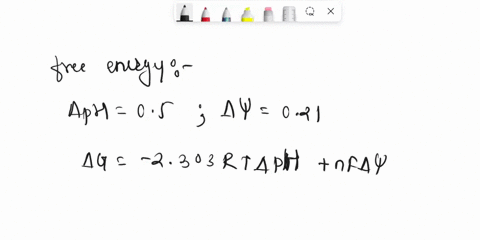 free energy:-
ΔpH = 0.5 ; ΔΨ = 0.21
ΔG = -2.303 RT ΔpH + nFΔΨ